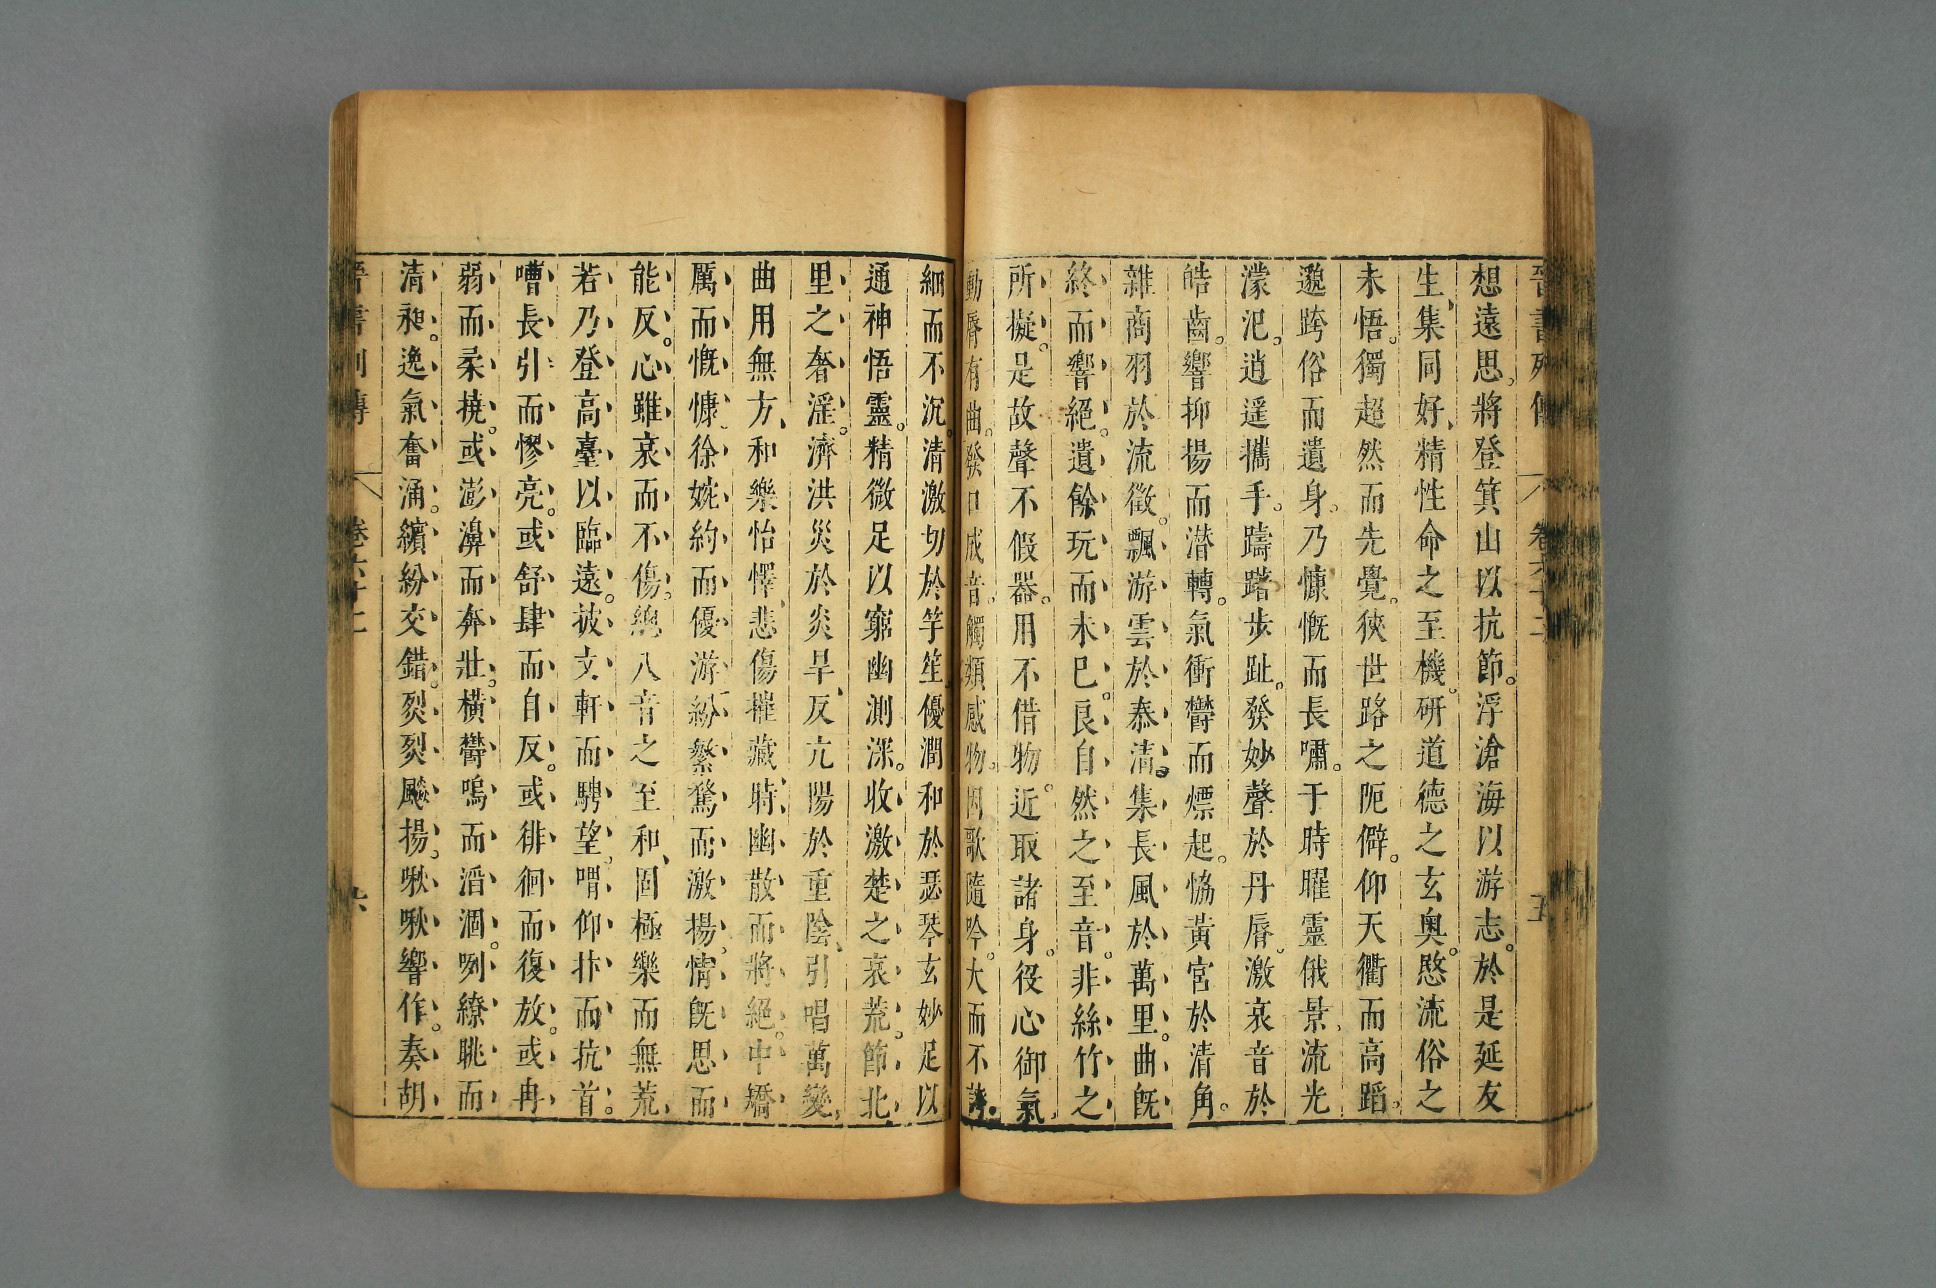 晉書列傳 卷六十二 五
想遠思。將登箕山以抗節。浮滄海以游志。於是延友
生、集同好、精性命之至機。研道德之玄奧。愍流俗之
未悟。獨超然而先覺。狹世路之阨僻。仰天衢而高蹈。
邈跨俗而遺身。乃慷慨而長嘯。于時曜靈俄景、流光
濛汜。逍遥攜手。躊躇步趾。發妙聲於丹脣。激哀音於
皓齒。響抑揚而潛轉。氣衝鬱而熛起。恊黃宮於清角。
雜商羽於流徵。飄游雲於泰清。集長風於萬里。曲旣
終而響絕。遺餘玩而未已。良自然之至音。非絲竹之
所擬。是故聲不假器。用不借物。近取諸身。役心御氣。
動脣有曲。發口成音。觸類感物。因歌隨吟。大而不
細而不沉。清激切於竽笙、優潤和於瑟琴。玄妙足以
通神悟靈。精微足以窮幽測深。收激楚之哀荒。節北
里之奢淫。濟洪災於炎旱、反亢陽於重陰、引唱萬變、
曲用無方、和樂怡懌、悲傷摧藏、時幽散而將絕。中矯
厲而慨慷、徐婉約而優游、紛繁騖而激揚。情旣思而
能反。心雖哀而不傷。緫八音之至和、固極樂而無荒、
若乃登高臺以臨遠。披文軒而騁望、喟仰抃而抗首。
嘈長引而憀亮。或舒肆而自反。或徘徊而復放。或冉
弱而柔撓。或澎濞而奔壯。橫鬱嗚而滔涸。咧繚眺而
清昶。逸氣奮涌。繽紛交錯。烈烈飈揚。啾啾響作。奏胡
晉書列傳 卷六十二 六